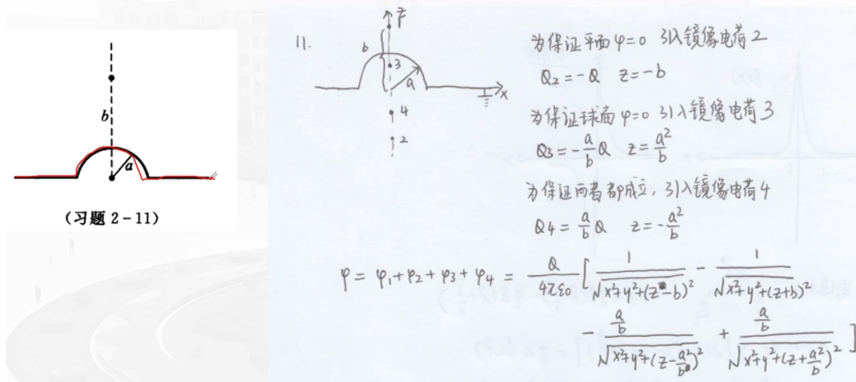 b
a
(习题 2-11)
11.
z
b
3
a
x
4
2
为保证平面φ=0 引入镜像电荷2
Q₂=-Q z=-b
为保证球面φ=0 引入镜像电荷3
Q₃=-\frac{a}{b}Q z=\frac{a²}{b}
为保证两者都成立, 引入镜像电荷4
Q₄=\frac{a}{b}Q z=-\frac{a²}{b}
φ=φ₁+φ₂+φ₃+φ₄=\frac{Q}{4πε₀}[\frac{1}{\sqrt{x²+y²+(z-b)²}}-\frac{1}{\sqrt{x²+y²+(z+b)²}}
-\frac{\frac{a}{b}}{\sqrt{x²+y²+(z-\frac{a²}{b})²}}+\frac{\frac{a}{b}}{\sqrt{x²+y²+(z+\frac{a²}{b})²}}]